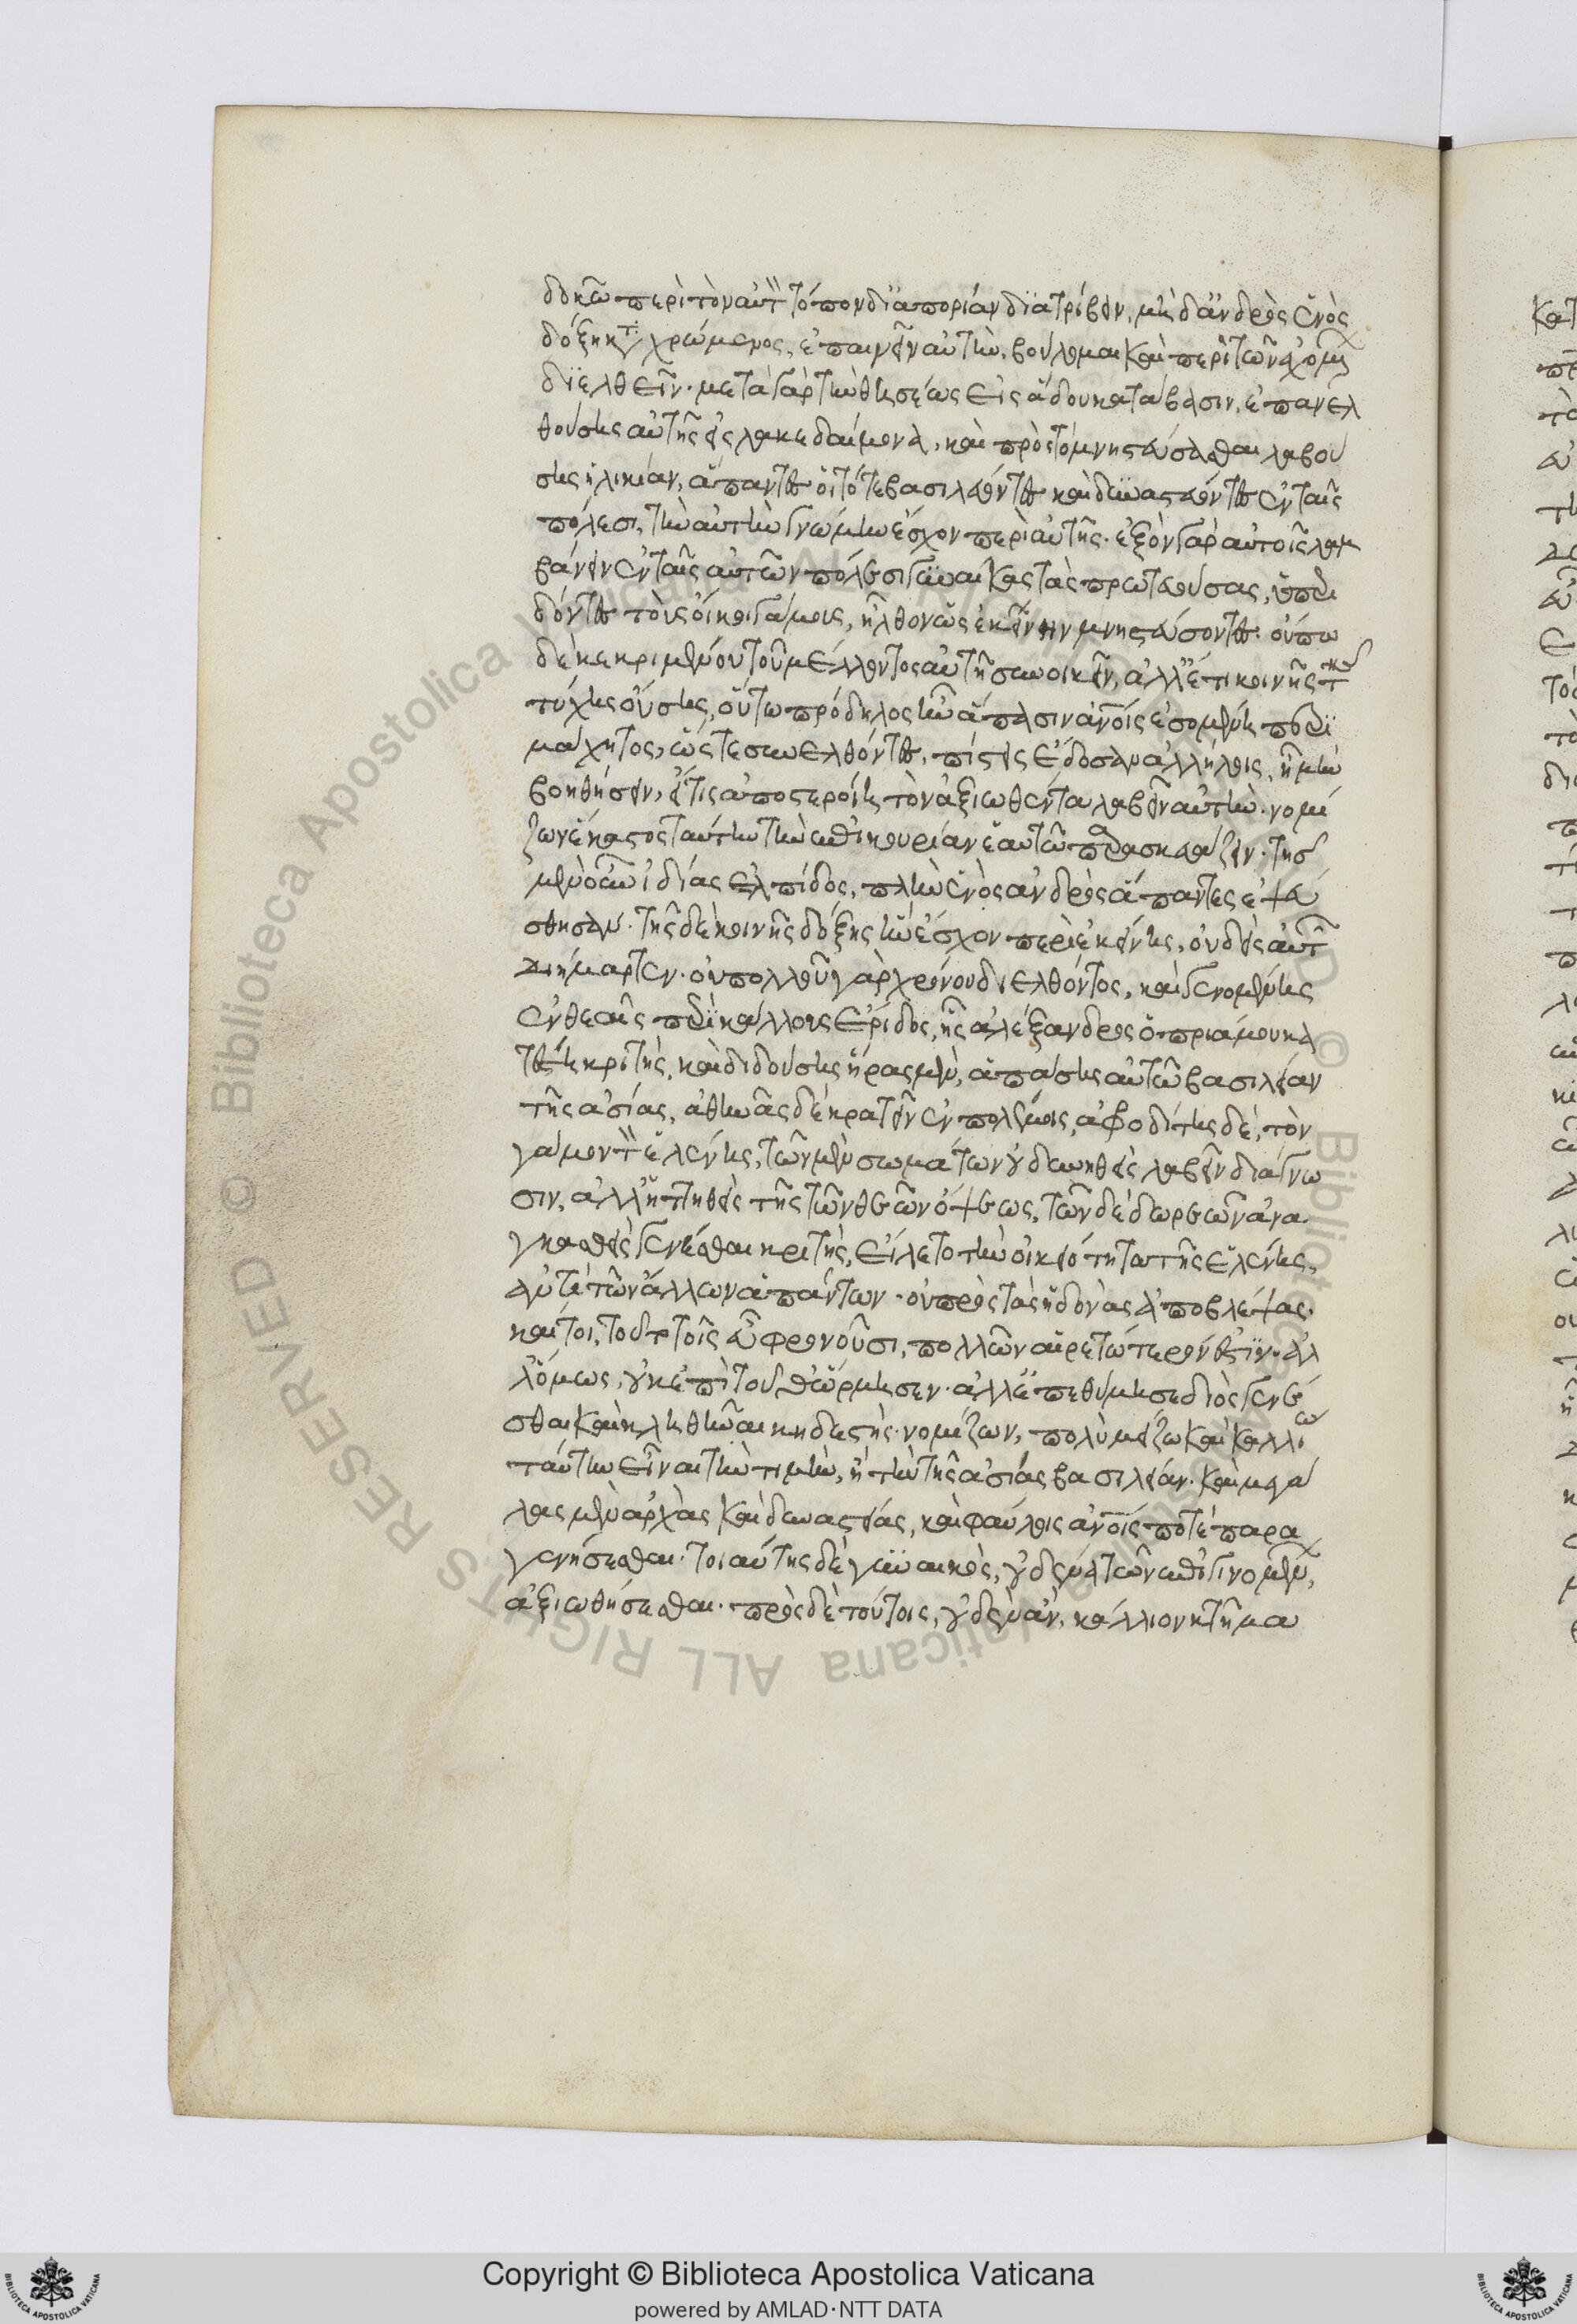 δοκῶ περὶ τὸν αὐτὸν τόπον δι' ἀπορίαν διατρίβειν, μηδ' ἀνδρὸς ἑνὸς
δόξῃ καταχρώμενος, ἐπαινεῖν αὐτήν, βούλομαι καὶ περὶ τῶν ἐχομένων
διελθεῖν. μετὰ γὰρ τὴν θησέως εἰς ἅδου κατάβασιν, ἐπανελ
θούσης αὐτῆς εἰς λακεδαίμονα, καὶ πρὸς τὸ μνηστεύσασθαι λαβού
σης ἡλικίαν, ἅπαντες οἱ τότε βασιλεύοντες καὶ δυναστεύοντες ἐν ταῖς
πόλεσι, τὴν αὐτὴν γνώμην ἔσχον περὶ αὐτῆς. ἐξὸν γὰρ αὐτοῖς λαμ
βάνειν ἐν ταῖς αὐτῶν πόλεσι γυναῖκας τὰς πρωτευούσας, ὑπερι
δόντες τοὺς οἴκοι γάμους, ἦλθον ὡς ἐκείνην μνηστεύσοντες. οὔπω
δὲ κεκριμένου τοῦ μέλλοντος αὐτῇ συνοικεῖν, ἀλλ' ἔτι κοινῆς τῆς
τύχης οὔσης, οὕτω πρόδηλος ἦν ἅπασιν ἀνοῖς ἐσομένη περι
μάχητος, ὥστε συνελθόντες, πίστεις ἔδοσαν ἀλλήλοις, ἦ μὴν
βοηθήσειν, εἴ τις ἀποστεροίη τὸν ἀξιωθέντα λαβεῖν αὐτήν. νομί
ζων ἕκαστος ταύτην τὴν ἐπικουρίαν ἑαυτῷ παρασκευάζειν. τῆς
μὲν οὖν ἰδίας ἐλπίδος, πλὴν ἑνὸς ἀνδρὸς ἅπαντες ἐψεύ
σθησαν. τῆς δὲ κοινῆς δόξης ἣν ἔσχον περὶ ἐκείνης, οὐδεὶς αὐτῶν
διήμαρτεν. οὐ πολλοῦ γὰρ χρόνου διελθόντος, καὶ γενομένης
ἐν θεοῖς περὶ κάλλους ἔριδος, ἧς ἀλέξανδρος ὁ πριάμου κα
τέστη κριτὴς, καὶ διδούσης ἥρας μὲν, ἁπάσης αὐτῷ βασιλεύειν
τῆς ἀσίας, ἀθηνᾶς δὲ κρατεῖν ἐν πολέμοις, ἀφροδίτης δὲ, τὸν
γάμον τὸν ἑλένης, τῶν μὲν σωμάτων οὐ δυνηθεὶς λαβεῖν διάγνω
σιν, ἀλλ' ἡττηθεὶς τῆς τῶν θεῶν ὄψεως, τῶν δὲ δωρεῶν ἀνα
γκασθεὶς γενέσθαι κριτὴς, εἵλετο τὴν οἰκειότητα τῆς ἑλένης,
ἀντὶ τῶν ἄλλων ἁπάντων. οὐ πρὸς τὰς ἡδονὰς ἀποβλέψας.
καίτοι, τοῦτο τοῖς εὖ φρονοῦσι, πολλῶν αἱρετώτερόν ἐστιν. ἀλ
λ' ὅμως, οὐκ ἐπὶ τοῦθ' ὥρμησεν. ἀλλ' ἐπεθύμησε διὸς γενέ
σθαι καὶ κληθῆναι κηδεστής. νομίζων, πολὺ μείζω καὶ καλλίω
ταύτην εἶναι τὴν τιμὴν, ἢ τὴν τῆς ἀσίας βασιλείαν. καὶ μεγά
λας μὲν ἀρχὰς καὶ δυναστείας, καὶ φαύλοις ἀνοῖς ποτὲ παρα
γενήσεσθαι. τοιαύτης δὲ γυναικὸς, οὐδένα τῶν ἐπιγινομένων,
ἀξιωθήσεσθαι. πρὸς δὲ τούτοις, οὐδὲν ἂν, κάλλιον κτῆμα